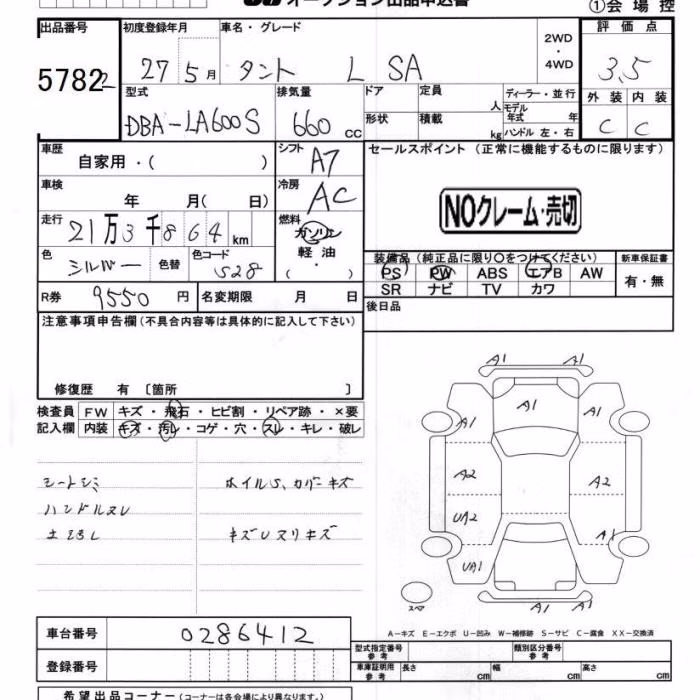 オークション出品申込書
①会場控
出品番号 初度登録年月 車名・グレード 2WD・4WD 評価点
57822 27年5月 タント L SA 3.5
型式 排気量 ドア 定員 人 ディーラー・並行 外装 内装
DBA-LA600S 660 cc 形状 積載 kg モデル年式 年 ハンドル 左・右 C C
車歴 自家用・( ) シフト A7 セールスポイント (正常に機能するものに限ります)
車検 年 月( 日) 冷房 AC NOクレーム・売切
走行 21万3千864km 燃料 ガソリン
色 シルバー 色替 色コード S28 軽油・
装備品 (純正品に限り〇をつけてください) 新車保証書
PS PW ABS エアB AW 有・無
SR ナビ TV カワ
R券 9550円 名変期限 月 日 後日品
注意事項申告欄 (不具合内容等は具体的に記入して下さい)
修復歴 有 〔箇所 〕
検査員 FW キズ・飛石・ヒビ割・リペア跡・×要
記入欄 内装 キズ・汚レ・コゲ・穴・スレ・キレ・破レ
シートシミ ホイルS、カバーキズ
ハンドルスレ
キズUヌリキズ
A1 A1
A1 A1 A1
A2 A2
UA2 A1
UA1
A1 A1
スペア
A-キズ E-エクボ U-凹み W-補修跡 S-サビ C-腐食 XX-交換済
車台番号 0286412
型式指定番号 参考 類別区分番号 参考
登録番号 車庫証明用 参考 長さ cm 幅 cm 高さ cm
希望出品コーナー (コーナーは各会場により異なります)